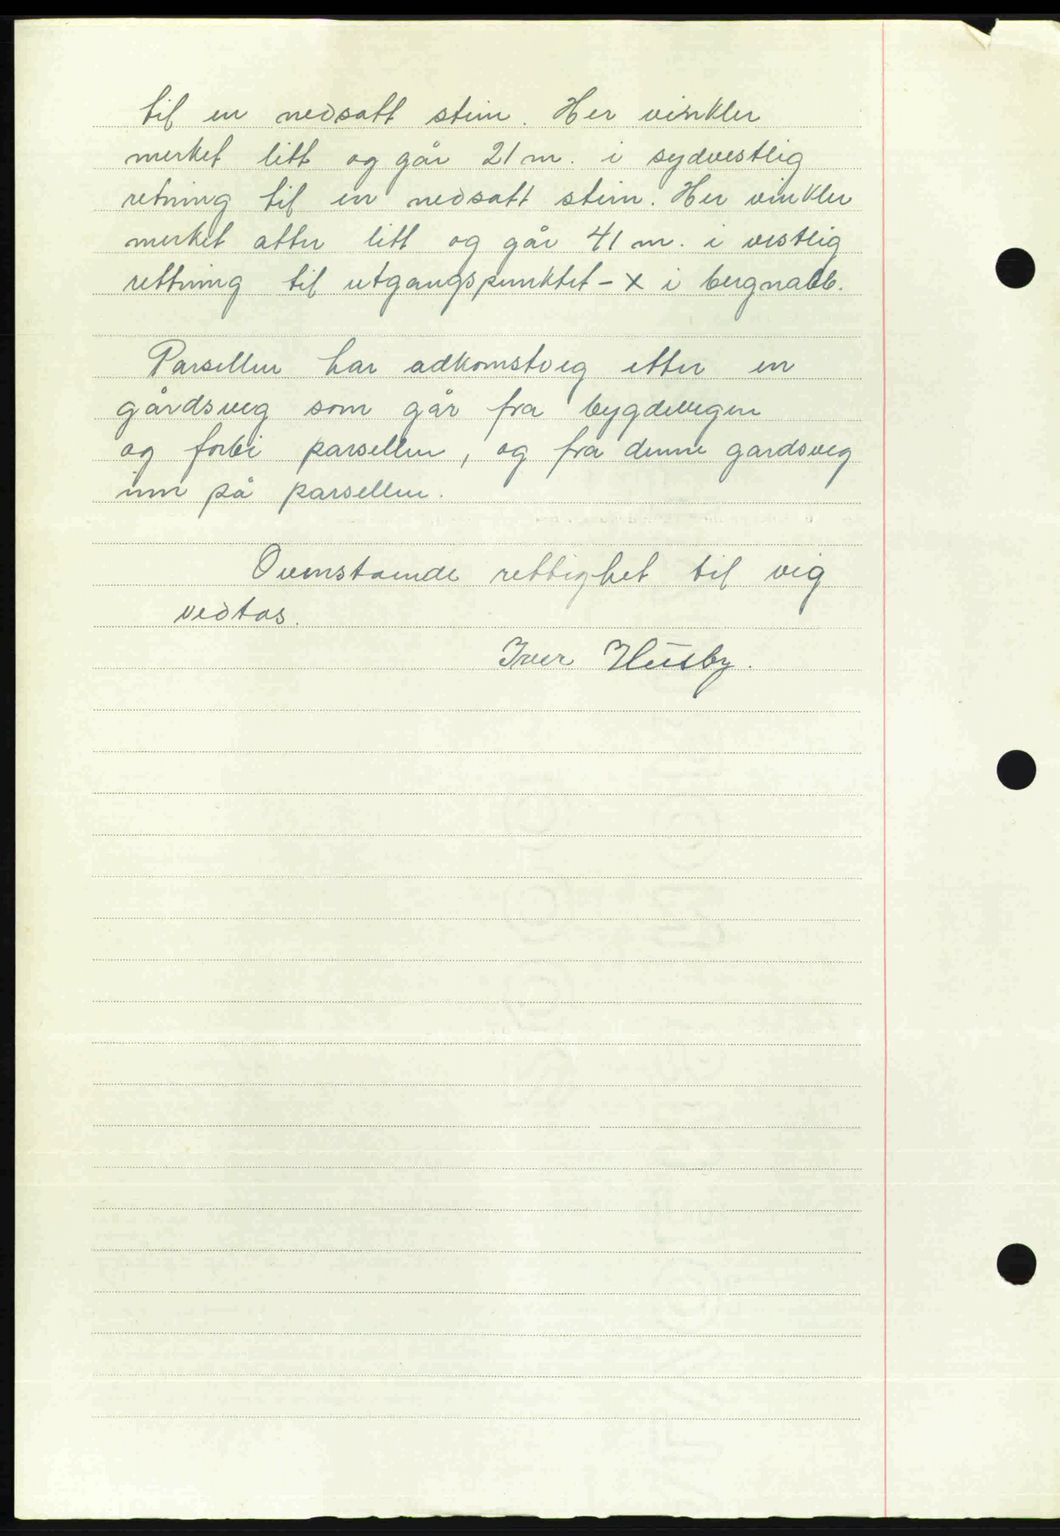 til en nedsatt stein. Her vinkler
merket litt og går 21 m. i sydvestlig
retning til en nedsatt stein. Her vinkler
merket atter litt og går 41 m. i vestlig
rettning til utgangspunktet - X i bergnabb.
Parsellen har adkomstveg etter en
gårdsveg som går fra bygdevegen
og forbi parsellen, og fra denne gardsveg
inn på parsellen.
Ovenstående rettighet til veg
vedtas.
Iver Husby.